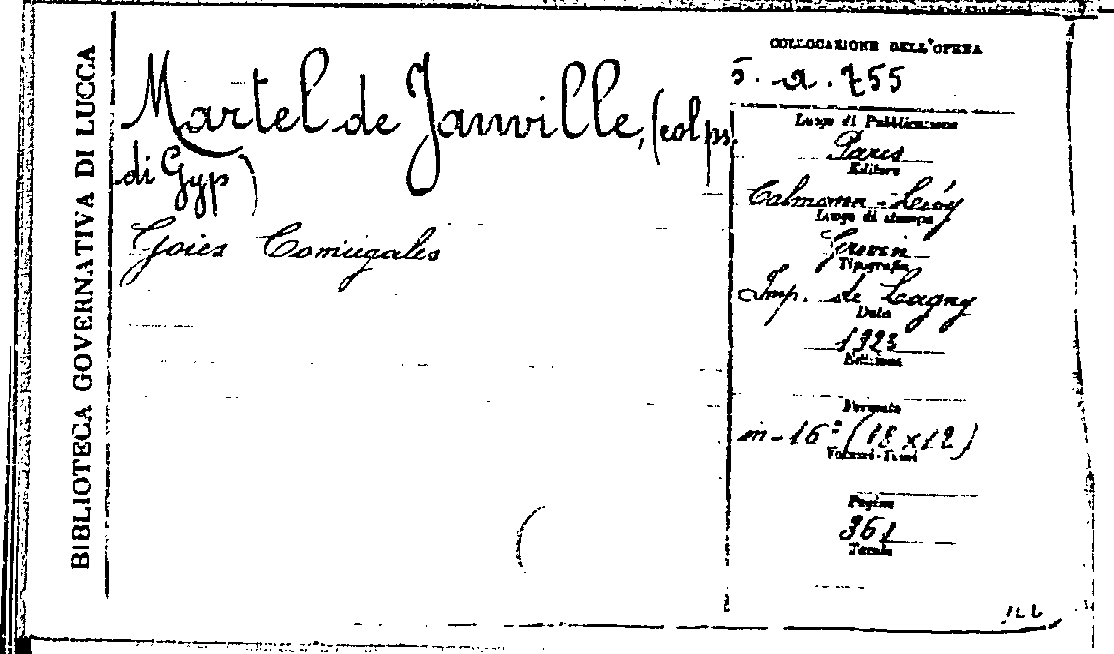 BIBLIOTECA GOVERNATIVA DI LUCCA
Martel de Janville, (col ps.
di Gyp)
Joies Conjugales
COLLOCAZIONE DELL'OPERA
5. a. 755
Luogo di Pubblicazione
Paris
Editore
Calmann-Lévy
Luogo di stampa
Tipografia
Imp. de Lagny
Data
1923
Edizione
Formato
in-16° (18 x 12)
Volumi-Tomi
Pagine
361
Tavole